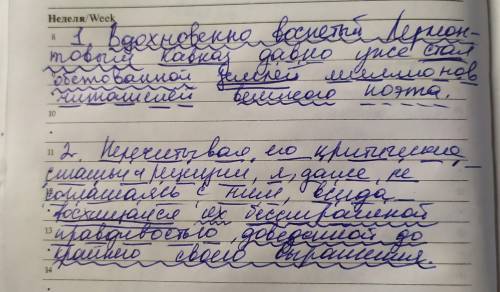 Неделя/Week
8 1. Вдохновенно воспетый Лермон-
товым Кавказ давно уже стал
обетованной землёй миллионов
читателей великого поэта.
10
11 2. Перечитывая его критические
статьи и рецензии, я, даже не
соглашаясь с ним, всегда
восхищался их бесстрашной
13 правдивостью, доведённой до
крайнего своего выражения.
14